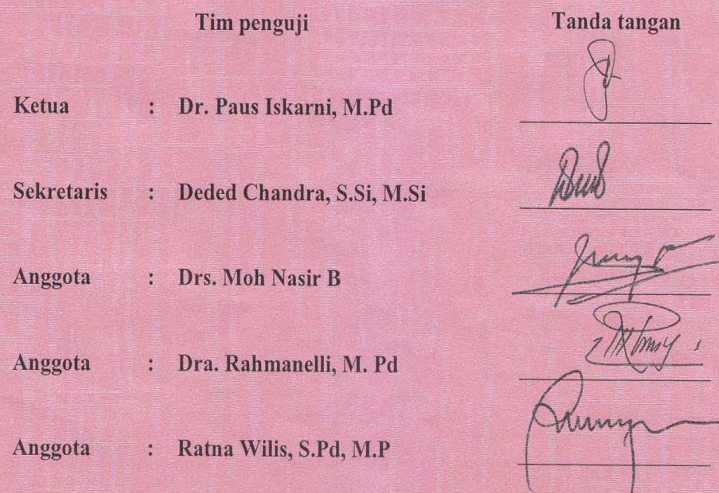 Tim penguji Tanda tangan
Ketua : Dr. Paus Iskarni, M.Pd
Sekretaris : Deded Chandra, S.Si, M.Si
Anggota : Drs. Moh Nasir B
Anggota : Dra. Rahmanelli, M. Pd
Anggota : Ratna Wilis, S.Pd, M.P